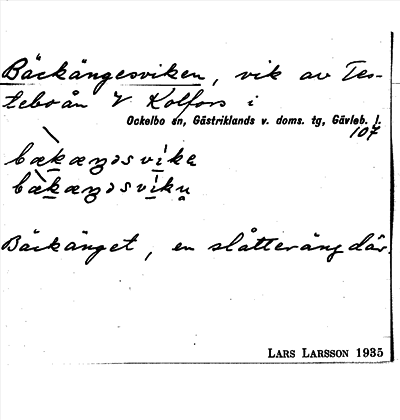 Bäckängesviken, vik av Tes-
teboån V Kolfors i
Ockelbo sn, Gästriklands v. doms. tg, Gävleb. l.
107
Bäckänget, en slåtteräng där.
LARS LARSSON 1935